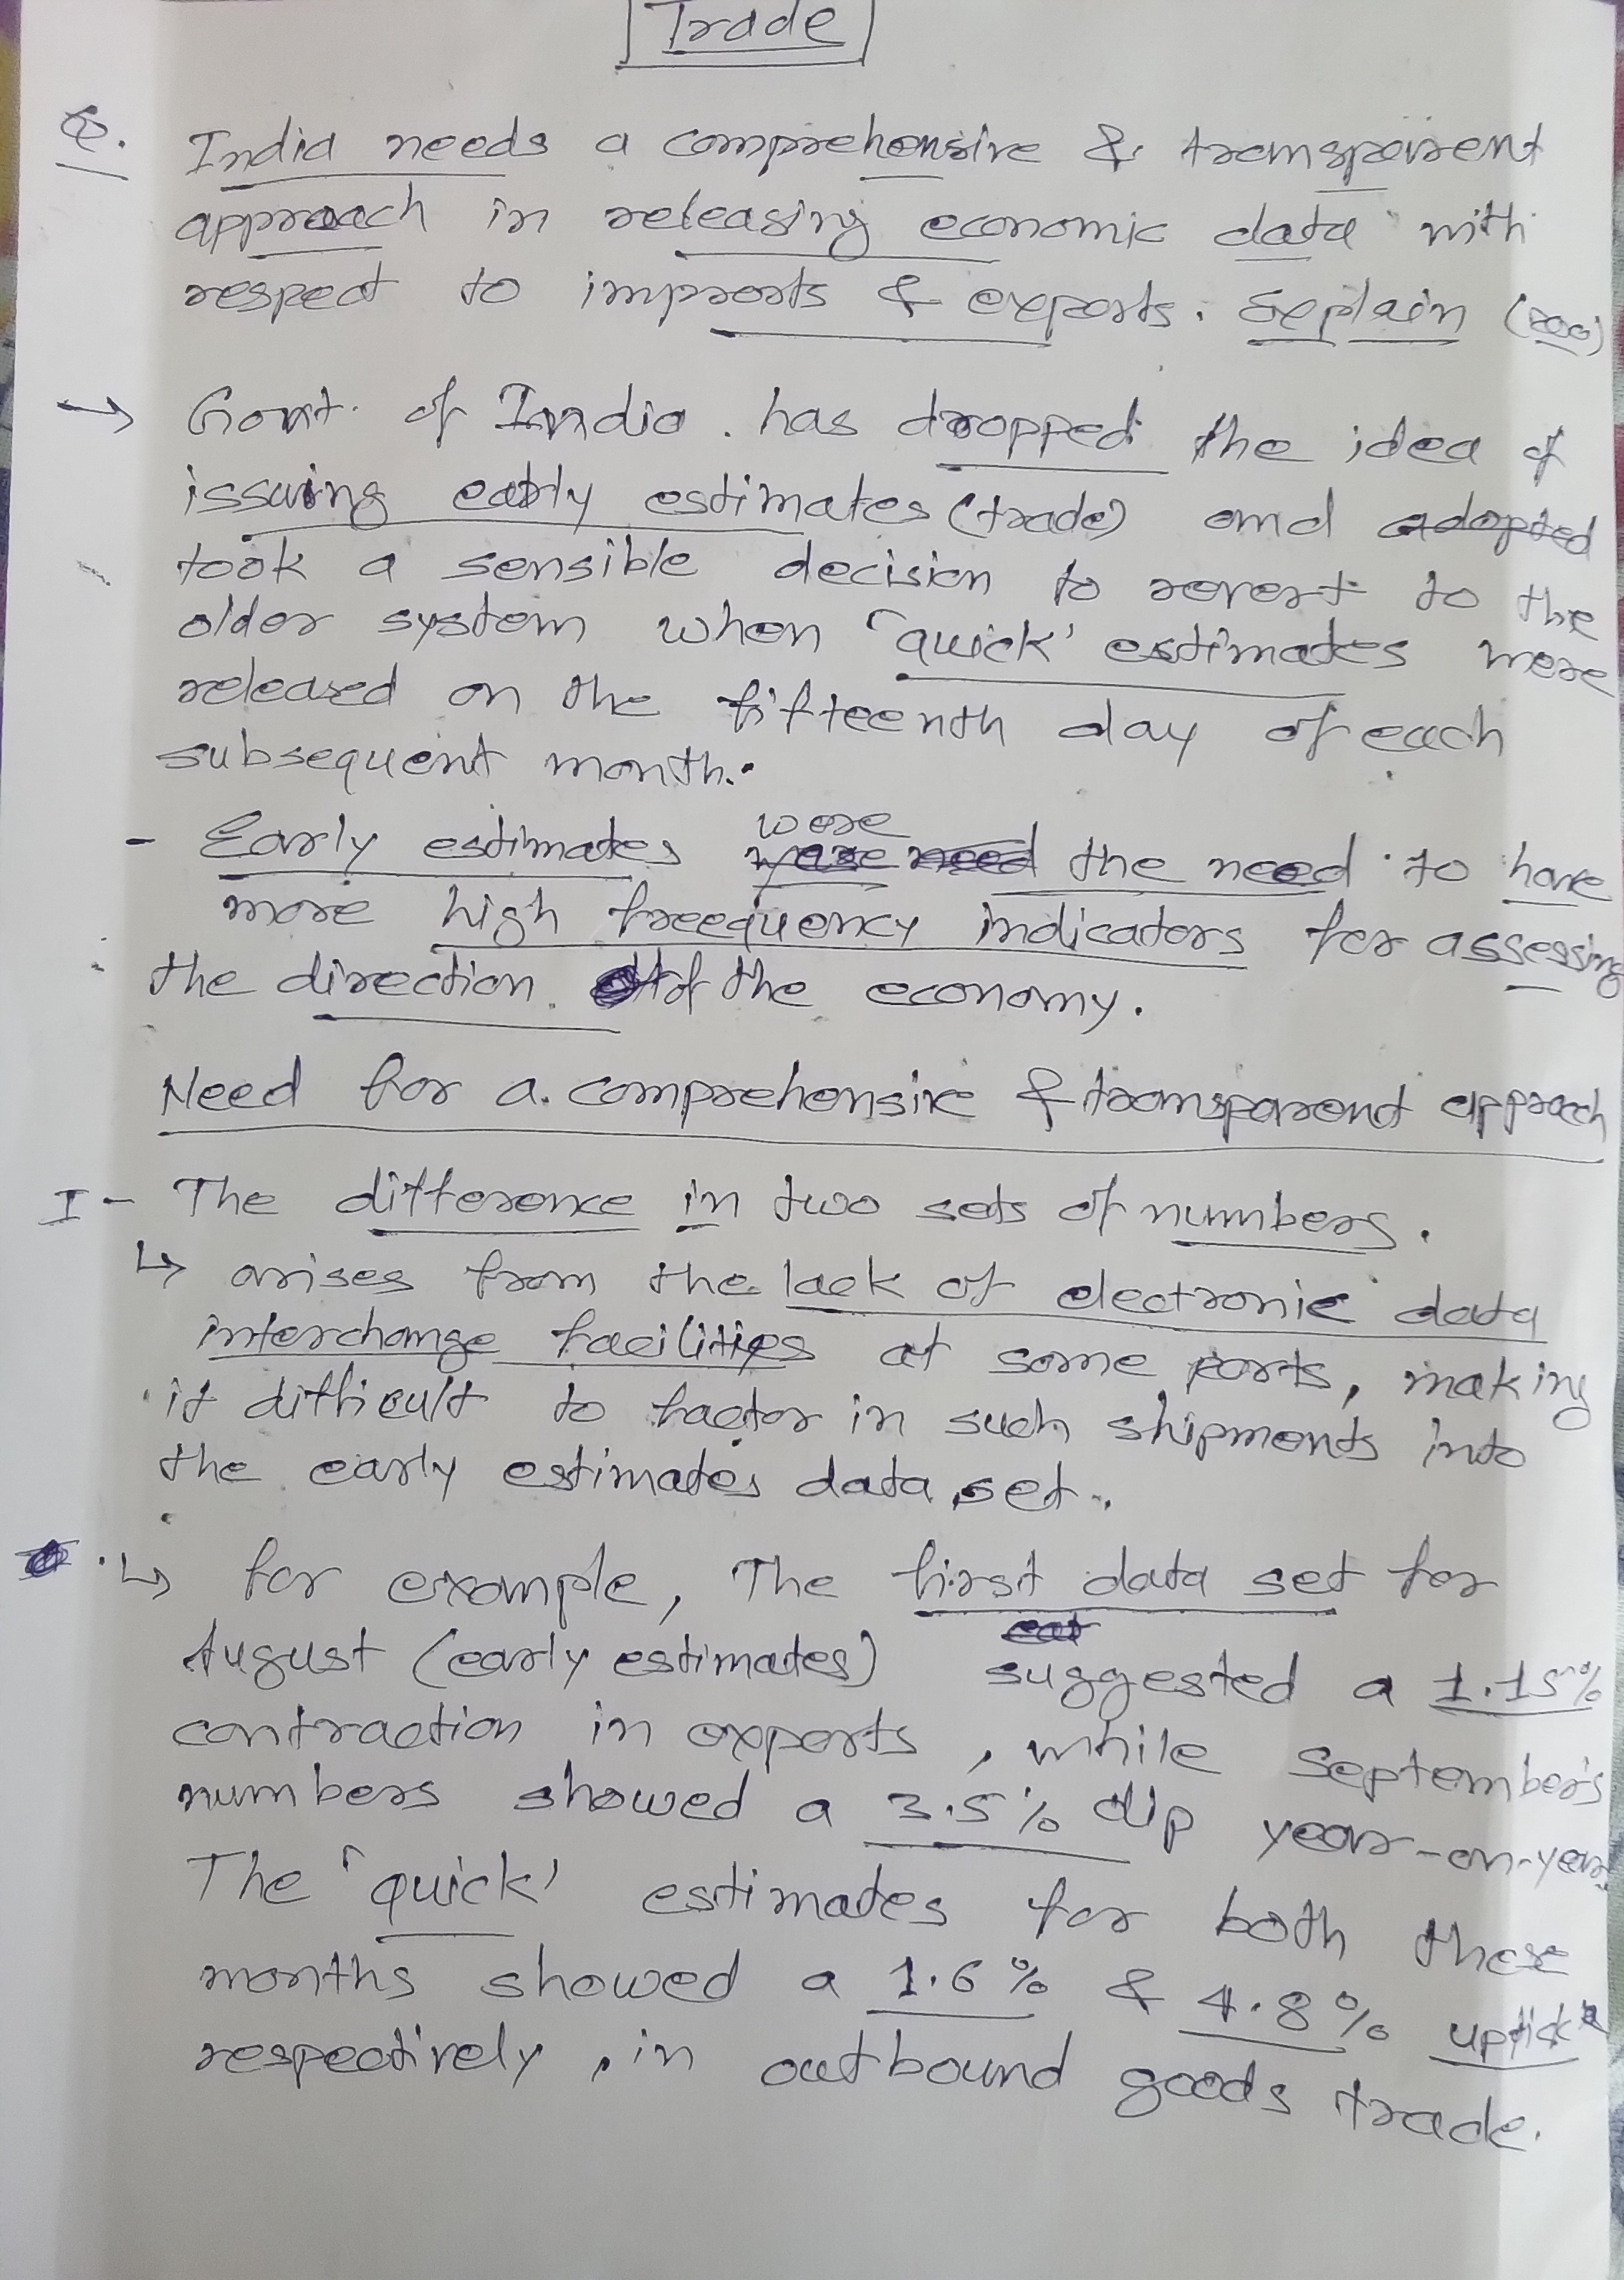 Trade
Q. India needs a comprehensive & transparent
approach in releasing economic data with
respect to imports & exports. Explain (200)
→ Govt. of India. has dropped the idea of
issuing early estimates (trade) and adopted
took a sensible decision to revert to the
older system when 'quick' estimates were
released on the fifteenth day of each
subsequent month.
were
- Early estimates need the need to have
more high freequency indicators for assessing
the direction of the economy.
Need for a comprehensive & transparent approach
I - The difference in two sets of numbers.
↳ arises from the lack of electronic data
interchange facilities at some ports, making
it difficult to factor in such shipments into
the early estimates data set.
↳ for example, The first data set for
August (early estimates) suggested a 1.15%
contraction in exports, while September's
numbers showed a 3.5% dip year-on-year.
The 'quick' estimates for both these
months showed a 1.6% & 4.8% uptick
respectively, in outbound goods trade.